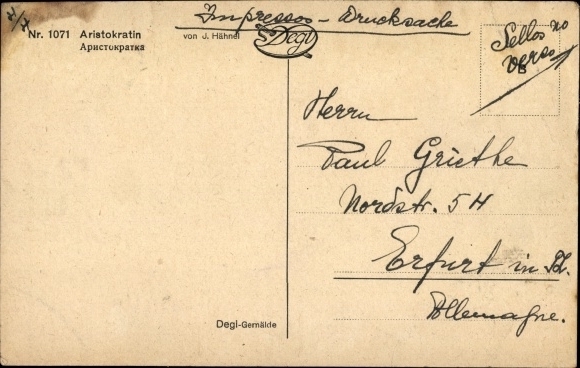 Impressos - Drucksache
Nr. 1071 Aristokratin
Аристократка
von J. Hähnel
Degi
Sellos no
verso
Herrn
Paul Griethe
Nordstr. 54
Erfurt in Th.
Allemagne.
Degi-Gemälde